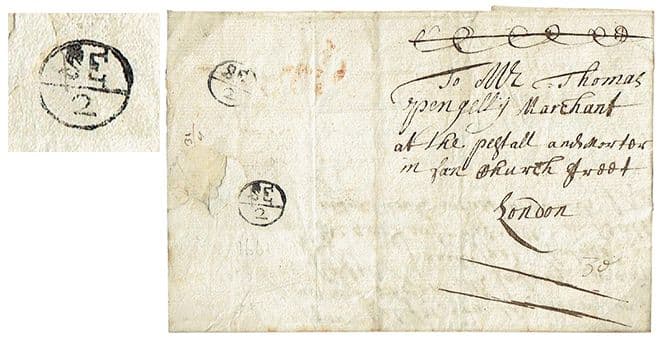 SE
2
SE
2
To Mr Thomas
ppengelly Marchant
at the pestall and Morter
in fan Church street
London
SE
2
1661
3d